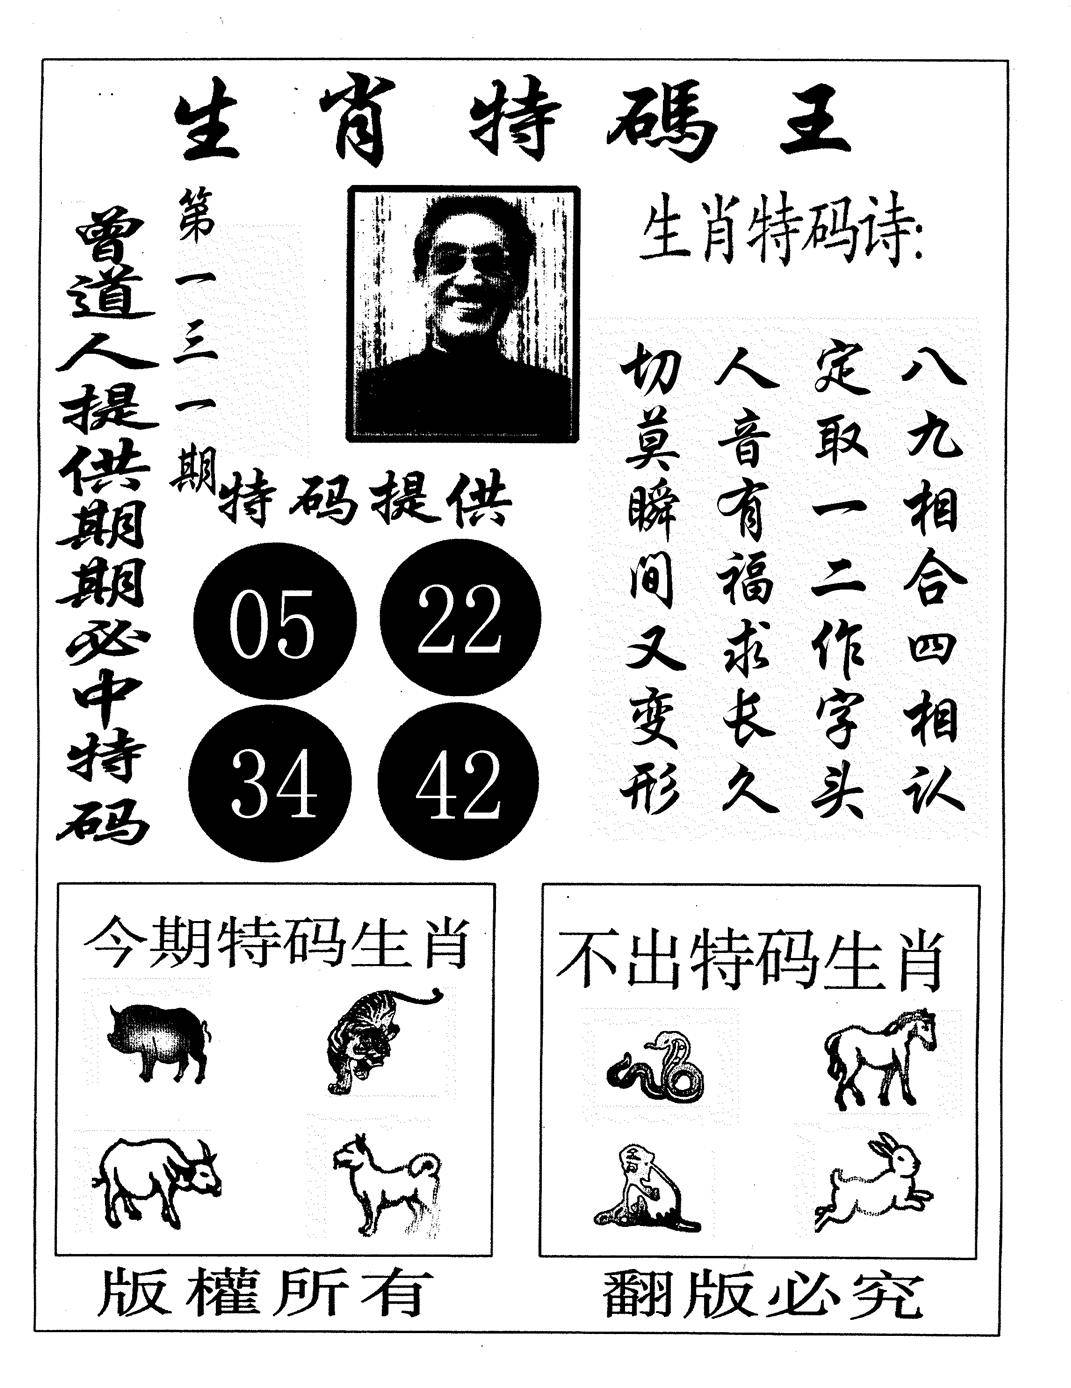 生肖特碼王
曾道人提供期期必中特码
第一三一期
生肖特码诗:
八九相合四相认
定取一二作字头
人音有福求长久
切莫瞬间又变形
特码提供
05 22
34 42
今期特码生肖
不出特码生肖
版權所有
翻版必究